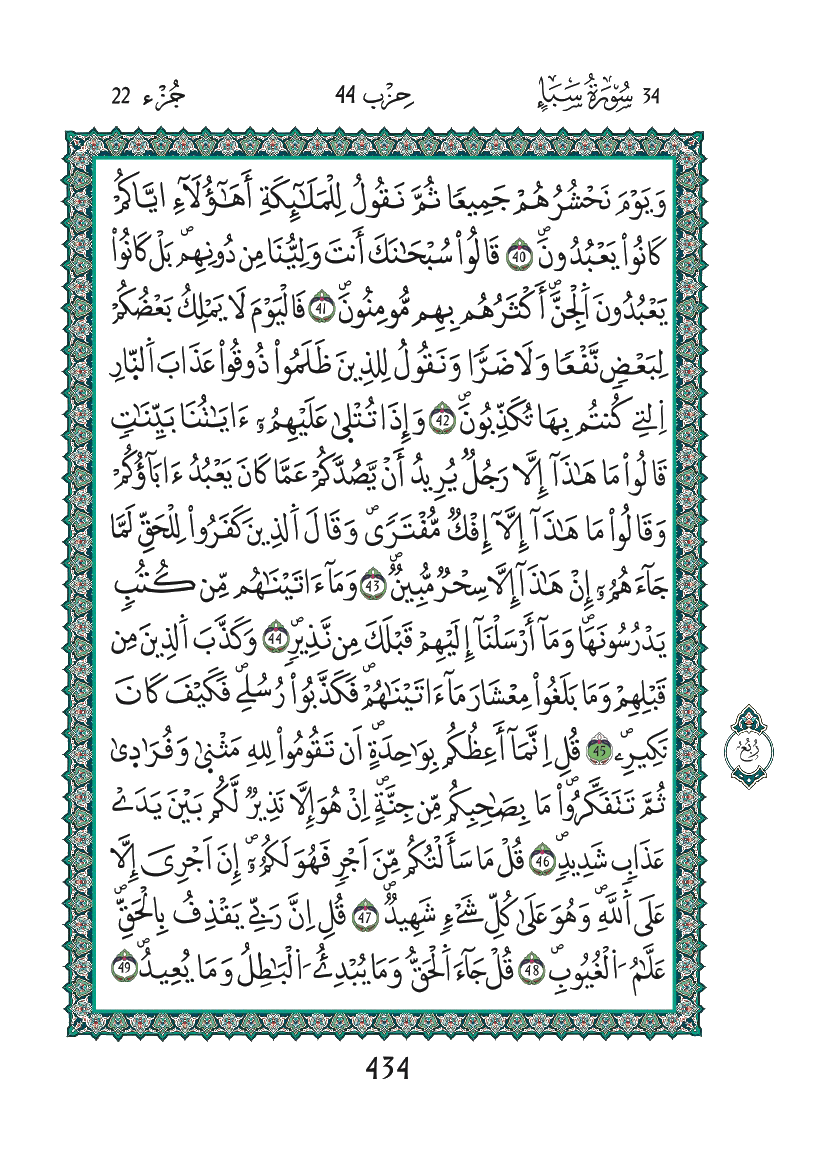 34 سُورَةُ سَبَإٍ
حِزْب 44
جُزْء 22
وَيَوْمَ نَحْشُرُهُمْ جَمِيعًا ثُمَّ نَقُولُ لِلْمَلَٰٓئِكَةِ أَهَٰٓؤُلَآءِ اِيَّاكُمْ
كَانُواْ يَعْبُدُونَۖ 40 قَالُواْ سُبْحَٰنَكَ أَنتَ وَلِيُّنَا مِن دُونِهِمۖ بَلْ كَانُواْ
يَعْبُدُونَ اَ۬لْجِنَّۖ أَكْثَرُهُم بِهِم مُّومِنُونَۖ 41 فَالْيَوْمَ لَا يَمْلِكُ بَعْضُكُمْ
لِبَعْضٖ نَّفْعًا وَلَا ضَرًّا وَنَقُولُ لِلذِينَ ظَلَمُواْ ذُوقُواْ عَذَابَ اَ۬لنَّارِ
اِ۬لتِے كُنتُم بِهَا تُكَذِّبُونَۖ 42 وَإِذَا تُتْلَىٰ عَلَيْهِمُۥٓ ءَايَٰتُنَا بَيِّنَٰتٖ
قَالُواْ مَا هَٰذَآ إِلَّا رَجُلٞ يُرِيدُ أَنْ يَّصُدَّكُمْ عَمَّا كَانَ يَعْبُدُ ءَابَآؤُكُمْ
وَقَالُواْ مَا هَٰذَآ إِلَّآ إِفْكٞ مُّفْتَرًىۖ وَقَالَ اَ۬لذِينَ كَفَرُواْ لِلْحَقِّ لَمَّا
جَآءَهُمُۥٓ إِنْ هَٰذَآ إِلَّا سِحْرٞ مُّبِينٞۖ 43 وَمَآ ءَاتَيْنَٰهُم مِّن كُتُبٖ
يَدْرُسُونَهَاۖ وَمَآ أَرْسَلْنَآ إِلَيْهِمْ قَبْلَكَ مِن نَّذِيرٖۖ 44 وَكَذَّبَ اَ۬لذِينَ مِن
قَبْلِهِمْ وَمَا بَلَغُواْ مِعْشَارَ مَآ ءَاتَيْنَٰهُمْۖ فَكَذَّبُواْ رُسُلِےۖ فَكَيْفَ كَانَ
نَكِيرِۦۖ 45 قُلِ اِنَّمَآ أَعِظُكُم بِوَٰحِدَةٍۖ اَن تَقُومُواْ لِلهِ مَثْنَىٰ وَفُرَٰدَىٰ
ثُمَّ تَتَفَكَّرُواْۖ مَا بِصَٰحِبِكُم مِّن جِنَّةٍۖ اِنْ هُوَ إِلَّا نَذِيرٞ لَّكُم بَيْنَ يَدَےْ
عَذَابٖ شَدِيدٖۖ 46 قُلْ مَا سَأَلْتُكُم مِّنَ اَجْرٖ فَهُوَ لَكُمُۥٓۖ إِنَ اَجْرِيَ إِلَّا
عَلَى اَ۬للَّهِۖ وَهُوَ عَلَىٰ كُلِّ شَےْءٖ شَهِيدٞۖ 47 قُلِ اِنَّ رَبِّے يَقْذِفُ بِالْحَقِّۖ
عَلَّٰمُ اُ۬لْغُيُوبِۖ 48 قُلْ جَآءَ اَ۬لْحَقُّ وَمَا يُبْدِئُ اُ۬لْبَٰطِلُ وَمَا يُعِيدُۖ 49
ربع
434